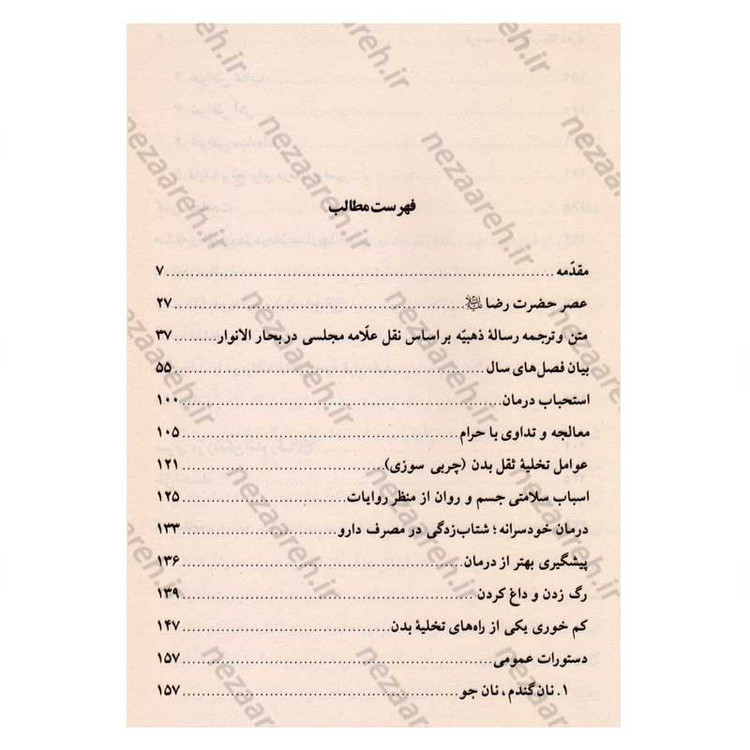 فهرست مطالب
مقدّمه ........ ۷
عصر حضرت رضا علیه‌السلام ........ ۲۷
متن و ترجمه رسالۀ ذهبیّه بر اساس نقل علّامه مجلسی در بحار الانوار ........ ۳۷
بیان فصل‌های سال ........ ۵۵
استحباب درمان ........ ۱۰۰
معالجه و تداوی با حرام ........ ۱۰۵
عوامل تخلیۀ ثقل بدن (چربی سوزی) ........ ۱۲۱
اسباب سلامتی جسم و روان از منظر روایات ........ ۱۲۵
درمان خودسرانه؛ شتاب‌زدگی در مصرف دارو ........ ۱۳۳
پیشگیری بهتر از درمان ........ ۱۳۶
رگ زدن و داغ کردن ........ ۱۳۹
کم خوری یکی از راه‌های تخلیۀ بدن ........ ۱۴۷
دستورات عمومی ........ ۱۵۷
۱. نان گندم، نان جو ........ ۱۵۷
nezaareh.ir